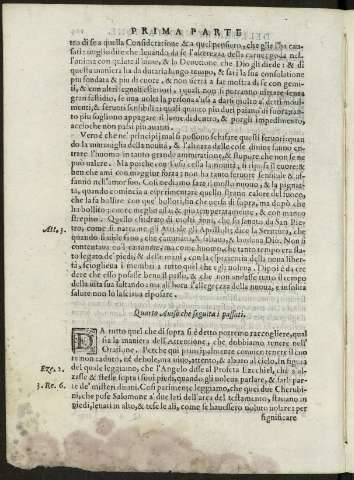 PRIMA PARTE
tro di se a quella Consideratione & a quel pensiero, che gliel'ha cau-
sati: meglio di che levando da se l'altrezza della
l'anima con quiete il lume, & la Devotione che Dio gli diede: & di
questa maniera ha da durar lungo tempo, & sarà la sua consolatione
più fondata & più di cuore, & non uscirà a far mostra di se con gemi-
ti, & con altri segnali esteriori, i quali non si potranno evitare senza
gran fastidio, se una volta la persona s'usa a darsi molto a' detti movi-
menti, & servosi sensibili: a quali quanto più dai patimenti di fuora tan-
to più sogliono appagare il lume di dentro, & porgli impedimento,
accioche non passi più avanti.
Vero è che ne' principij mal si possono schifare questi fervori: quan-
do la maraviglia della novità, & l'altezza delle cose divine fanno en-
trare l'huomo in tanta grande ammiratione, & stupore che non se ne
può valere. Ma poi che con l'uso cessa la novità, si riposa il cuore: &
ben che ami con maggior forza: non ha tanto fervore sensuale & al-
fannoso nell'amor suo. Così vediamo fare il mosto nuovo, & la pignat-
ta, quando comincia a esperimentare quello strano calore del fuoco,
che la fa bollire con que' bollori, che versa di sopra, ma dopò che
ha bollito: cuoce meglio assai: & più temperatamente, & con manco
strepito. Quello sfidrato di molti anni, che fu sanato da San Pie-
Act. 3. tro, come si narra ne gli Atti de gli Apostoli: dice la Scrittura, che
quando si vidde sano, che caminava, & saltava, & laudava Dio. Non si
contentava di caminare, ma come huomo, che tanto tempo era sta-
to legato de' piedi, & delle mani, con la esperientia della nova libertà,
scioglieva i membri a tutto quel che egli voleva. Dipoi è da cre-
dere che esso posasse benissimo, & che non andasse tutto il tempo
della vita sua saltando: ma all'hora l'allegrezza della nuova, e insolita
salute non lo lasciava riposare.
Quarto Aviso che seguita i passati.
DA tutto quel che di sopra si è detto potremo raccogliere, qual
sia la maniera dell'Attentione, che dobbiamo tenere nell'
Oratione. Perche qui principalmente conviene tenere il cuo
re non caduto, nè debole, ma vivo, attento, & alzato al cielo. In figura
Eze. 2. del quale leggiamo, che l'Angelo disse al Profeta Ezechiel, che s'al-
zasse & stesse sopra i suoi piedi, quando gli voleva parlare, & farlo par-
3. Re. 6. te de' misteri divini. Così parimente leggiamo, che quei due Cherubi-
ni, che pose Salomone a' due lati dell'arca del testamento, stavano in
piedi, levati in alto, & tese le ali, come se havessero voluto volare: per
significare